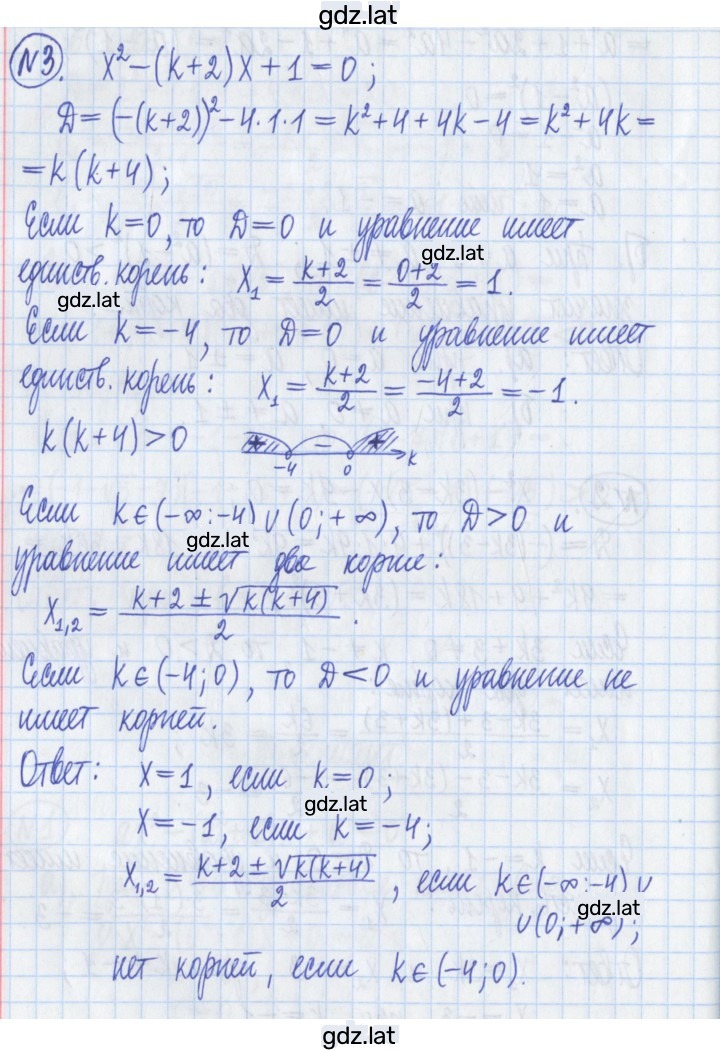 gdz.lat
№3. x² − (k+2)x + 1 = 0;
D = (−(k+2))² − 4·1·1 = k² + 4 + 4k − 4 = k² + 4k =
= k(k+4);
Если k=0, то D=0 и уравнение имеет
gdz.lat
единств. корень: x₁ = (k+2)/2 = (0+2)/2 = 1.
gdz.lat
Если k=−4, то D=0 и уравнение имеет
единств. корень: x₁ = (k+2)/2 = (−4+2)/2 = −1.
k(k+4)>0 + − + −4 0 k
Если k∈(−∞:−4)∪(0;+∞), то D>0 и
gdz.lat
уравнение имеет два корне:
x₁,₂ = (k+2±√k(k+4))/2.
Если k∈(−4;0), то D<0 и уравнение не
имеет корней.
Ответ: x=1, если k=0;
gdz.lat
x=−1, если k=−4;
x₁,₂ = (k+2±√k(k+4))/2, если k∈(−∞:−4)∪
gdz.lat
∪(0;+∞);
нет корней, если k∈(−4;0).
gdz.lat